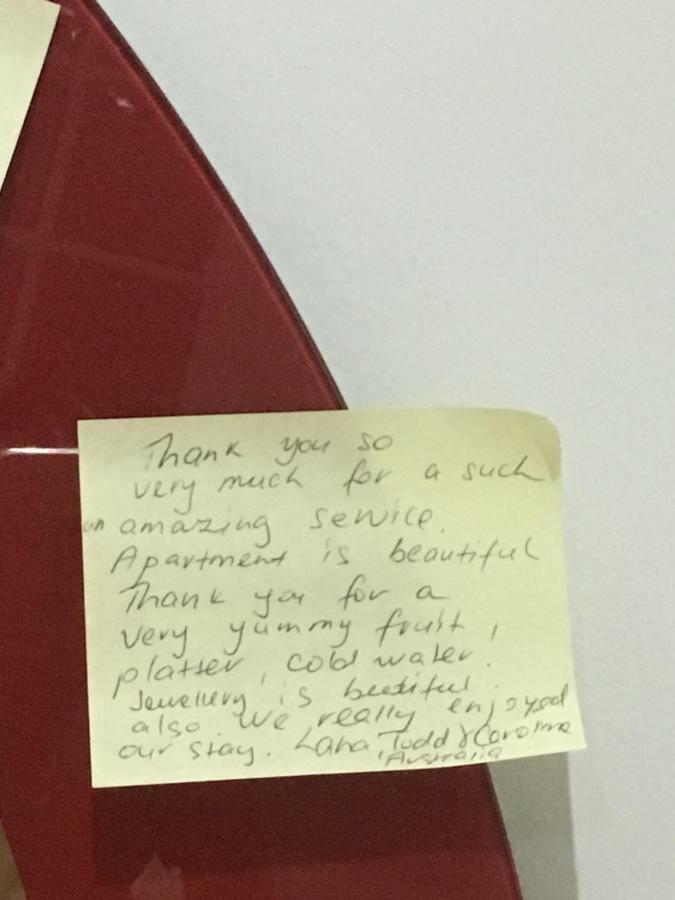 Thank you so
very much for a such
an amazing service.
Apartment is beautiful
Thank you for a
very yummy fruit,
platter, cold water.
Jewellery is beutiful
also. We really enjoyed
our stay. Lana, Todd & Caroline
Australia